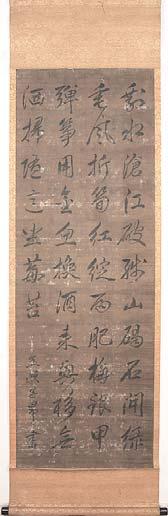 剩水滄江破殘山碣石開綠
垂風折筍紅綻雨肥梅銀甲
彈箏用金魚換酒來興移無
洒掃隨意坐莓苔